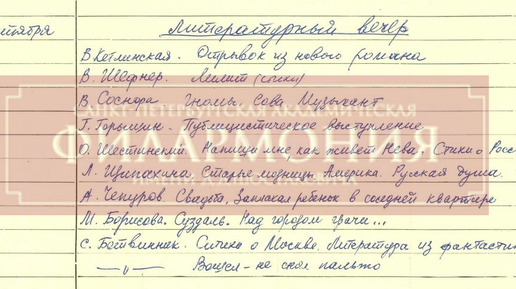 тября
Литературный вечер
В Кетлинская. Отрывок из нового романа
В. Шефнер. Лилит (стихи)
В Соснора Гномы. Сова Музыкант
САНКТ-ПЕТЕРБУРГСКАЯ АКАДЕМИЧЕСКАЯ
Г. Горышин. Публицистическое выступление
ФИЛАРМОНИЯ
О. Шестинский. Напиши мне, как живёт Нева. Стихи о Росс
ИМЕНИ Д.Д.ШОСТАКОВИЧА
Л. Щипахина. Старые модницы. Америка. Русская душа.
А. Чепуров. Свадьба, Заплакал ребёнок в соседней квартире
М. Борисова. Суздаль. Над городом грачи...
С. Ботвинник. Стихи о Москве. Литература из фантасти
—"— Вошел - не снял пальто